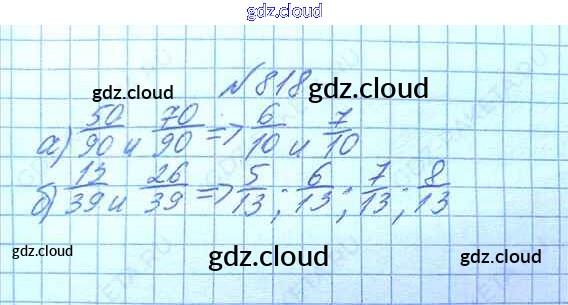 gdz.cloud
№ 818
gdz.cloud gdz.cloud
а) 50/90 и 70/90 => 6/10 и 7/10
б) 13/39 и 26/39 => 5/13; 6/13; 7/13; 8/13
gdz.cloud gdz.cloud gdz.cloud